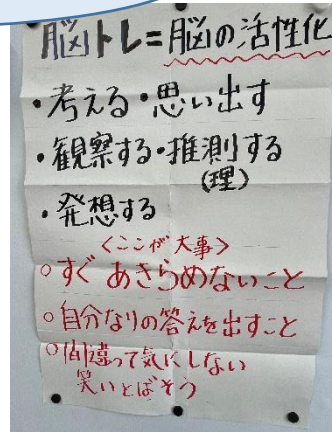 脳トレ=脳の活性化
・考える・思い出す
・観察する・推測する
(理)
・発想する
<ここが大事>
○すぐあきらめないこと
○自分なりの答えを出すこと
○間違って気にしない
笑いとばそう